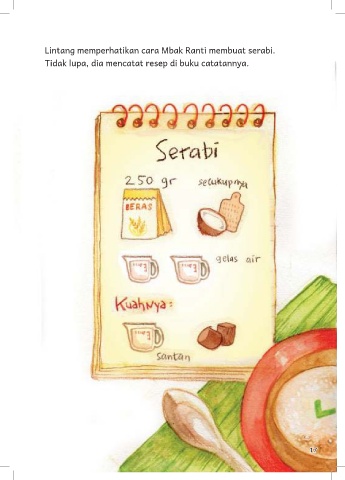 Lintang memperhatikan cara Mbak Ranti membuat serabi.
Tidak lupa, dia mencatat resep di buku catatannya.
Serabi
250 gr secukupnya
BERAS
gelas air
Kuahnya:
santan